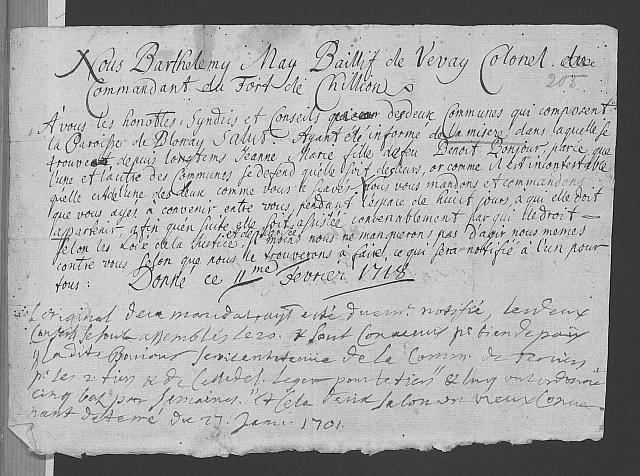 Nous Barthelemy May Baillif de Vevay Colonel du
Commandant du Fort de Chillion
205
A vous les honobles Syndics et Conseils des deux Communes qui composent
la Paroisse de Blonay Salut. Ayant été informé de la misere, dans laquelle se
trouve depuis longtems Jeanne Marie fille de feu Benoit Bonjour, parce que
l'une et l'autre des Communes se defend quelle soit des leurs, or comme il est incontestable
quelle est de l'une des deux comme vous le savez, Nous vous mandons et commandons
que vous ayes a convenir entre vous, pendant l'espace de huit jours, a qui elle doit
apartenir, afin quen suite elle soit assistée convenablement par qui de droit
selon les Loix de la Justice. moins nous ne manquerons pas d'agir nous memes
contre vous selon que nous le trouverons à faire, ce qui sera notifié à l'un pour
tous: Donné ce 11me fevrier 1718
L'original de ce mandat ayant esté notifié, les deux
Conseils se sont assemblés le 20. & sont Convenus
ladite Bonjour de la Comm. de
les 2 tiers & de Legier pour le tiers &
cinq batz par semaines. Et Cela vieux
du 27. Janv. 1701